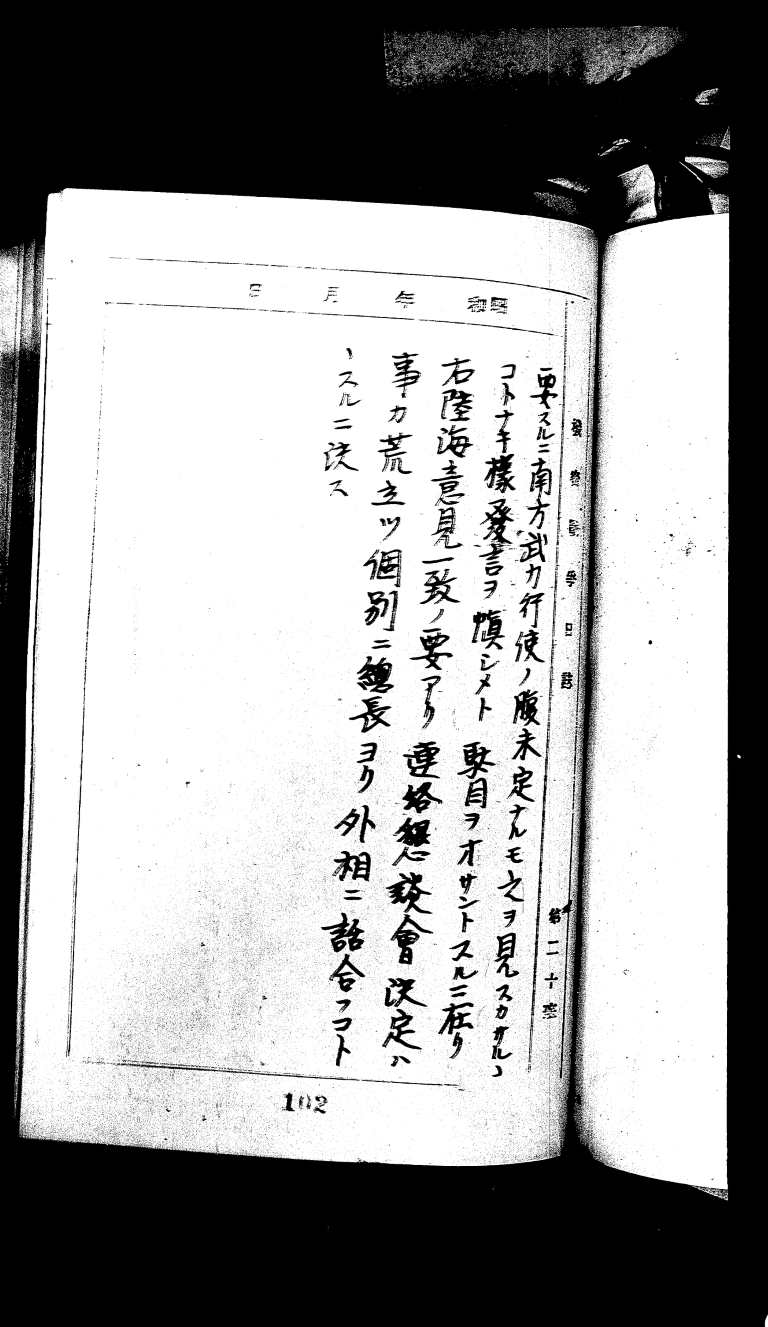 機密戰爭日誌
第二十班
昭和 年 月 日
要スルニ南方武力行使ノ腹未定ナルモ之ヲ見スカサルヽ
コトナキ樣發言ヲ愼シメト 駄目ヲオサントスルニ在リ
右陸海意見一致ノ要アリ 連絡懇談會決定ハ
事カ荒立ツ個別ニ總長ヨリ外相ニ話合フコト
ヽスルニ決ス
102